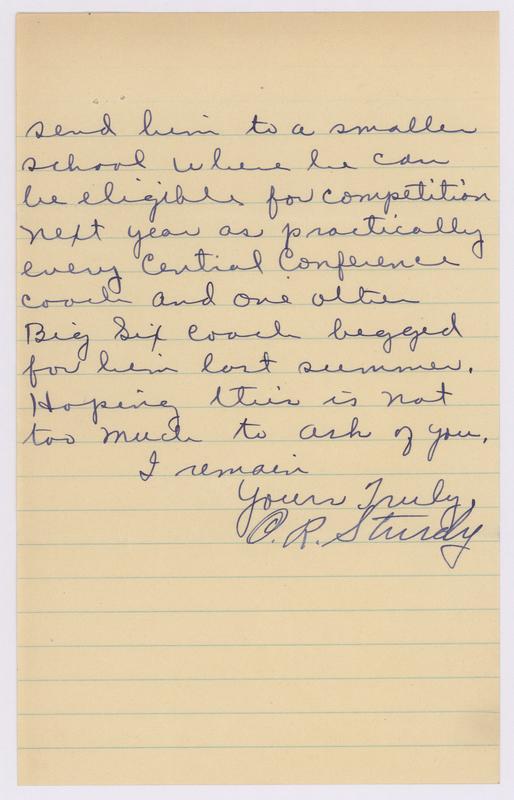 send him to a smaller
school where he can
be eligible for competition
next year as practically
every Central Conference
coach and one other
Big Six coach begged
for him last summer.
Hoping this is not
too much to ask of you,
I remain
Yours Truly,
C. R. Sturdy